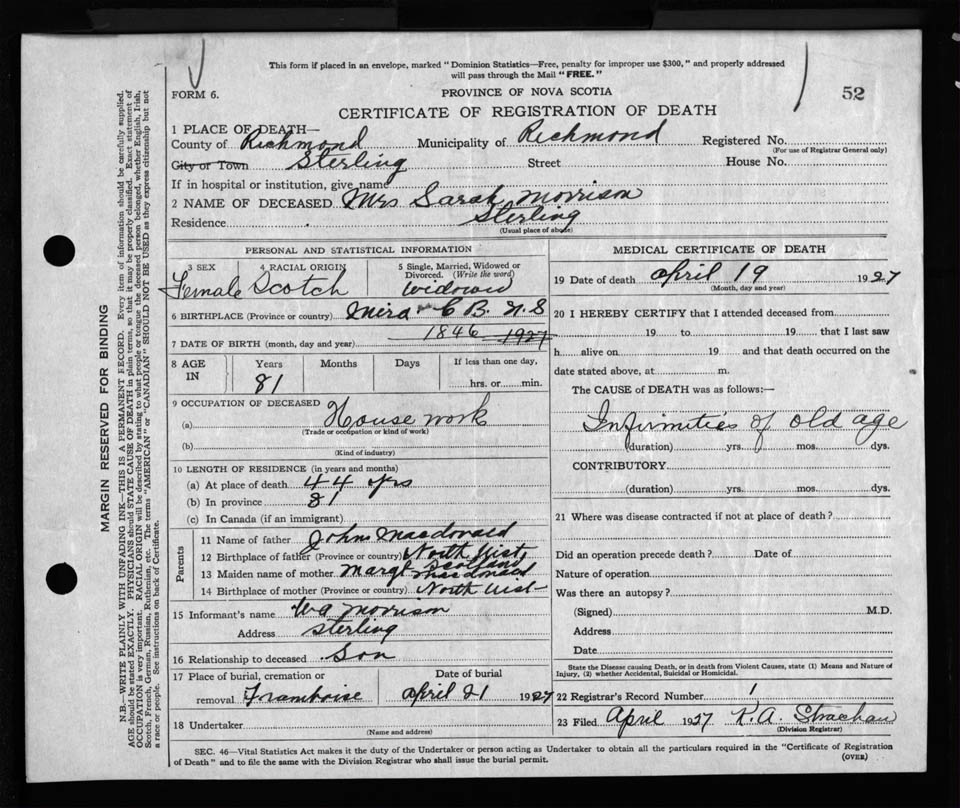 This form if placed in an envelope, marked "Dominion Statistics—Free, penalty for improper use $300," and properly addressed
will pass through the Mail "FREE."
FORM 6.
PROVINCE OF NOVA SCOTIA
52
CERTIFICATE OF REGISTRATION OF DEATH
1 PLACE OF DEATH—
County of Richmond Municipality of Richmond Registered No.
(For use of Registrar General only)
City or Town Sterling Street House No.
If in hospital or institution, give name
2 NAME OF DECEASED Mrs Sarah Morrison
Residence Sterling
(Usual place of abode)
PERSONAL AND STATISTICAL INFORMATION
3 SEX 4 RACIAL ORIGIN 5 Single, Married, Widowed or
Divorced. (Write the word)
Female Scotch widowed
6 BIRTHPLACE (Province or country) Mira C B. N. S
7 DATE OF BIRTH (month, day and year) 1846 1927
8 AGE IN Years Months Days If less than one day,
81 hrs. or min.
9 OCCUPATION OF DECEASED
(a) House work
(Trade or occupation or kind of work)
(b)
(Kind of industry)
10 LENGTH OF RESIDENCE (in years and months)
(a) At place of death 44 yrs
(b) In province 81
(c) In Canada (if an immigrant)
Parents
11 Name of father John Macdonald
12 Birthplace of father (Province or country) North Uist
Scotland
13 Maiden name of mother Margt Macdonald
14 Birthplace of mother (Province or country) North Uist
15 Informant's name Wa Morrison
Address Sterling
16 Relationship to deceased Son
17 Place of burial, cremation or Date of burial
removal Framboise April 21 1927
18 Undertaker
(Name and address)
MEDICAL CERTIFICATE OF DEATH
19 Date of death April 19 1927
(Month, day and year)
20 I HEREBY CERTIFY that I attended deceased from
19 to 19 that I last saw
h alive on 19 and that death occurred on the
date stated above, at m.
The CAUSE of DEATH was as follows:—
Infirmities of old age
(duration) yrs. mos. dys.
CONTRIBUTORY
(duration) yrs. mos. dys.
21 Where was disease contracted if not at place of death?
Did an operation precede death? Date of
Nature of operation
Was there an autopsy?
(Signed) M.D.
Address
Date
State the Disease causing Death, or in death from Violent Causes, state (1) Means and Nature of
Injury, (2) whether Accidental, Suicidal or Homicidal.
22 Registrar's Record Number 1
23 Filed April 1927 K. A. Strachan
(Division Registrar)
SEC. 46—Vital Statistics Act makes it the duty of the Undertaker or person acting as Undertaker to obtain all the particulars required in the "Certificate of Registration
of Death" and to file the same with the Division Registrar who shall issue the burial permit.
(OVER)
MARGIN RESERVED FOR BINDING
N.B.—WRITE PLAINLY WITH UNFADING INK—THIS IS A PERMANENT RECORD. Every item of information should be carefully supplied.
AGE should be stated EXACTLY. PHYSICIANS should STATE CAUSE OF DEATH in plain terms, so that it may be properly classified. Exact statement of
OCCUPATION is very important. RACIAL ORIGIN will be described by stating to what people or tongue the deceased person belonged, whether English, Irish,
Scotch, French, German, Russian, Ruthenian, etc. The terms "AMERICAN" or "CANADIAN" SHOULD NOT BE USED as they express citizenship but not
a race or people. See instructions on back of Certificate.